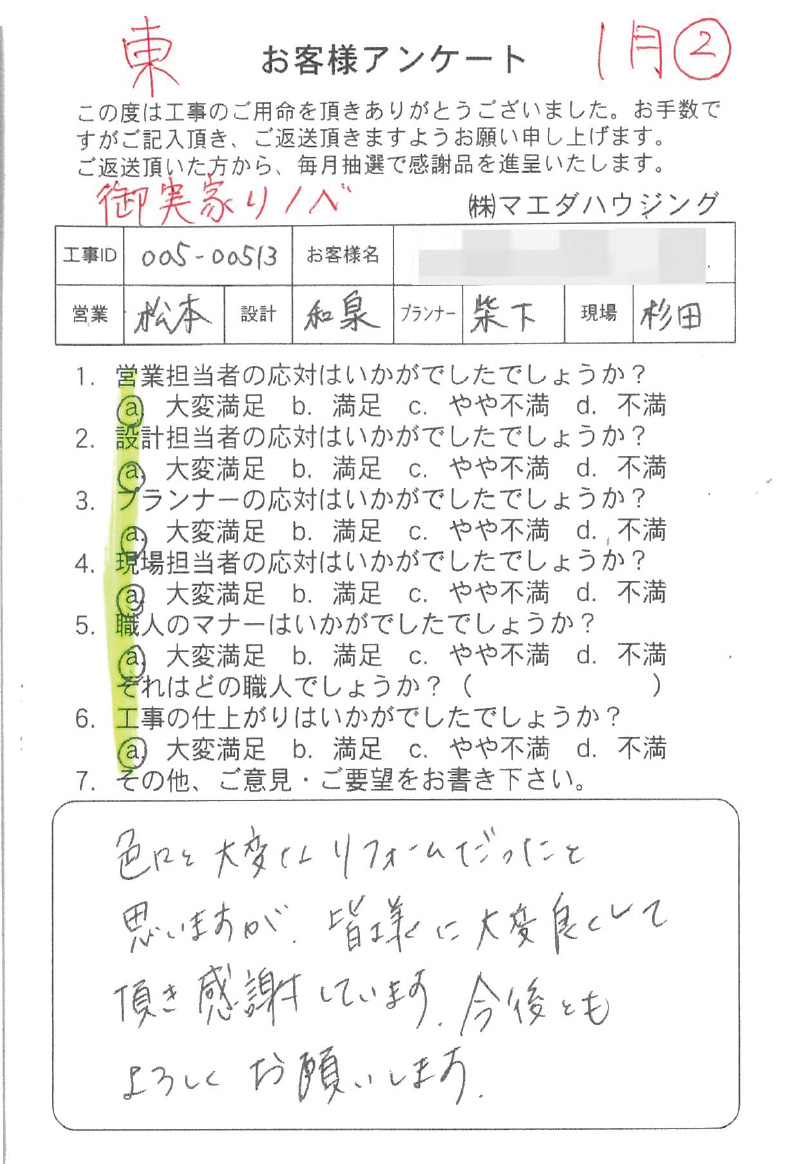 東 お客様アンケート 1月②
この度は工事のご用命を頂きありがとうございました。お手数で
すがご記入頂き、ご返送頂きますようお願い申し上げます。
ご返送頂いた方から、毎月抽選で感謝品を進呈いたします。
御実家リノベ ㈱マエダハウジング
工事ID 005-00513 お客様名
営業 松本 設計 和泉 プランナー 柴下 現場 杉田
1. 営業担当者の応対はいかがでしたでしょうか？
a. 大変満足 b. 満足 c. やや不満 d. 不満
2. 設計担当者の応対はいかがでしたでしょうか？
a. 大変満足 b. 満足 c. やや不満 d. 不満
3. プランナーの応対はいかがでしたでしょうか？
a. 大変満足 b. 満足 c. やや不満 d. 不満
4. 現場担当者の応対はいかがでしたでしょうか？
a. 大変満足 b. 満足 c. やや不満 d. 不満
5. 職人のマナーはいかがでしたでしょうか？
a. 大変満足 b. 満足 c. やや不満 d. 不満
それはどの職人でしょうか？（ ）
6. 工事の仕上がりはいかがでしたでしょうか？
a. 大変満足 b. 満足 c. やや不満 d. 不満
7. その他、ご意見・ご要望をお書き下さい。
色々と大変なリフォームだったと
思いますが、皆様に大変良くして
頂き感謝しています。今後とも
よろしくお願いします。